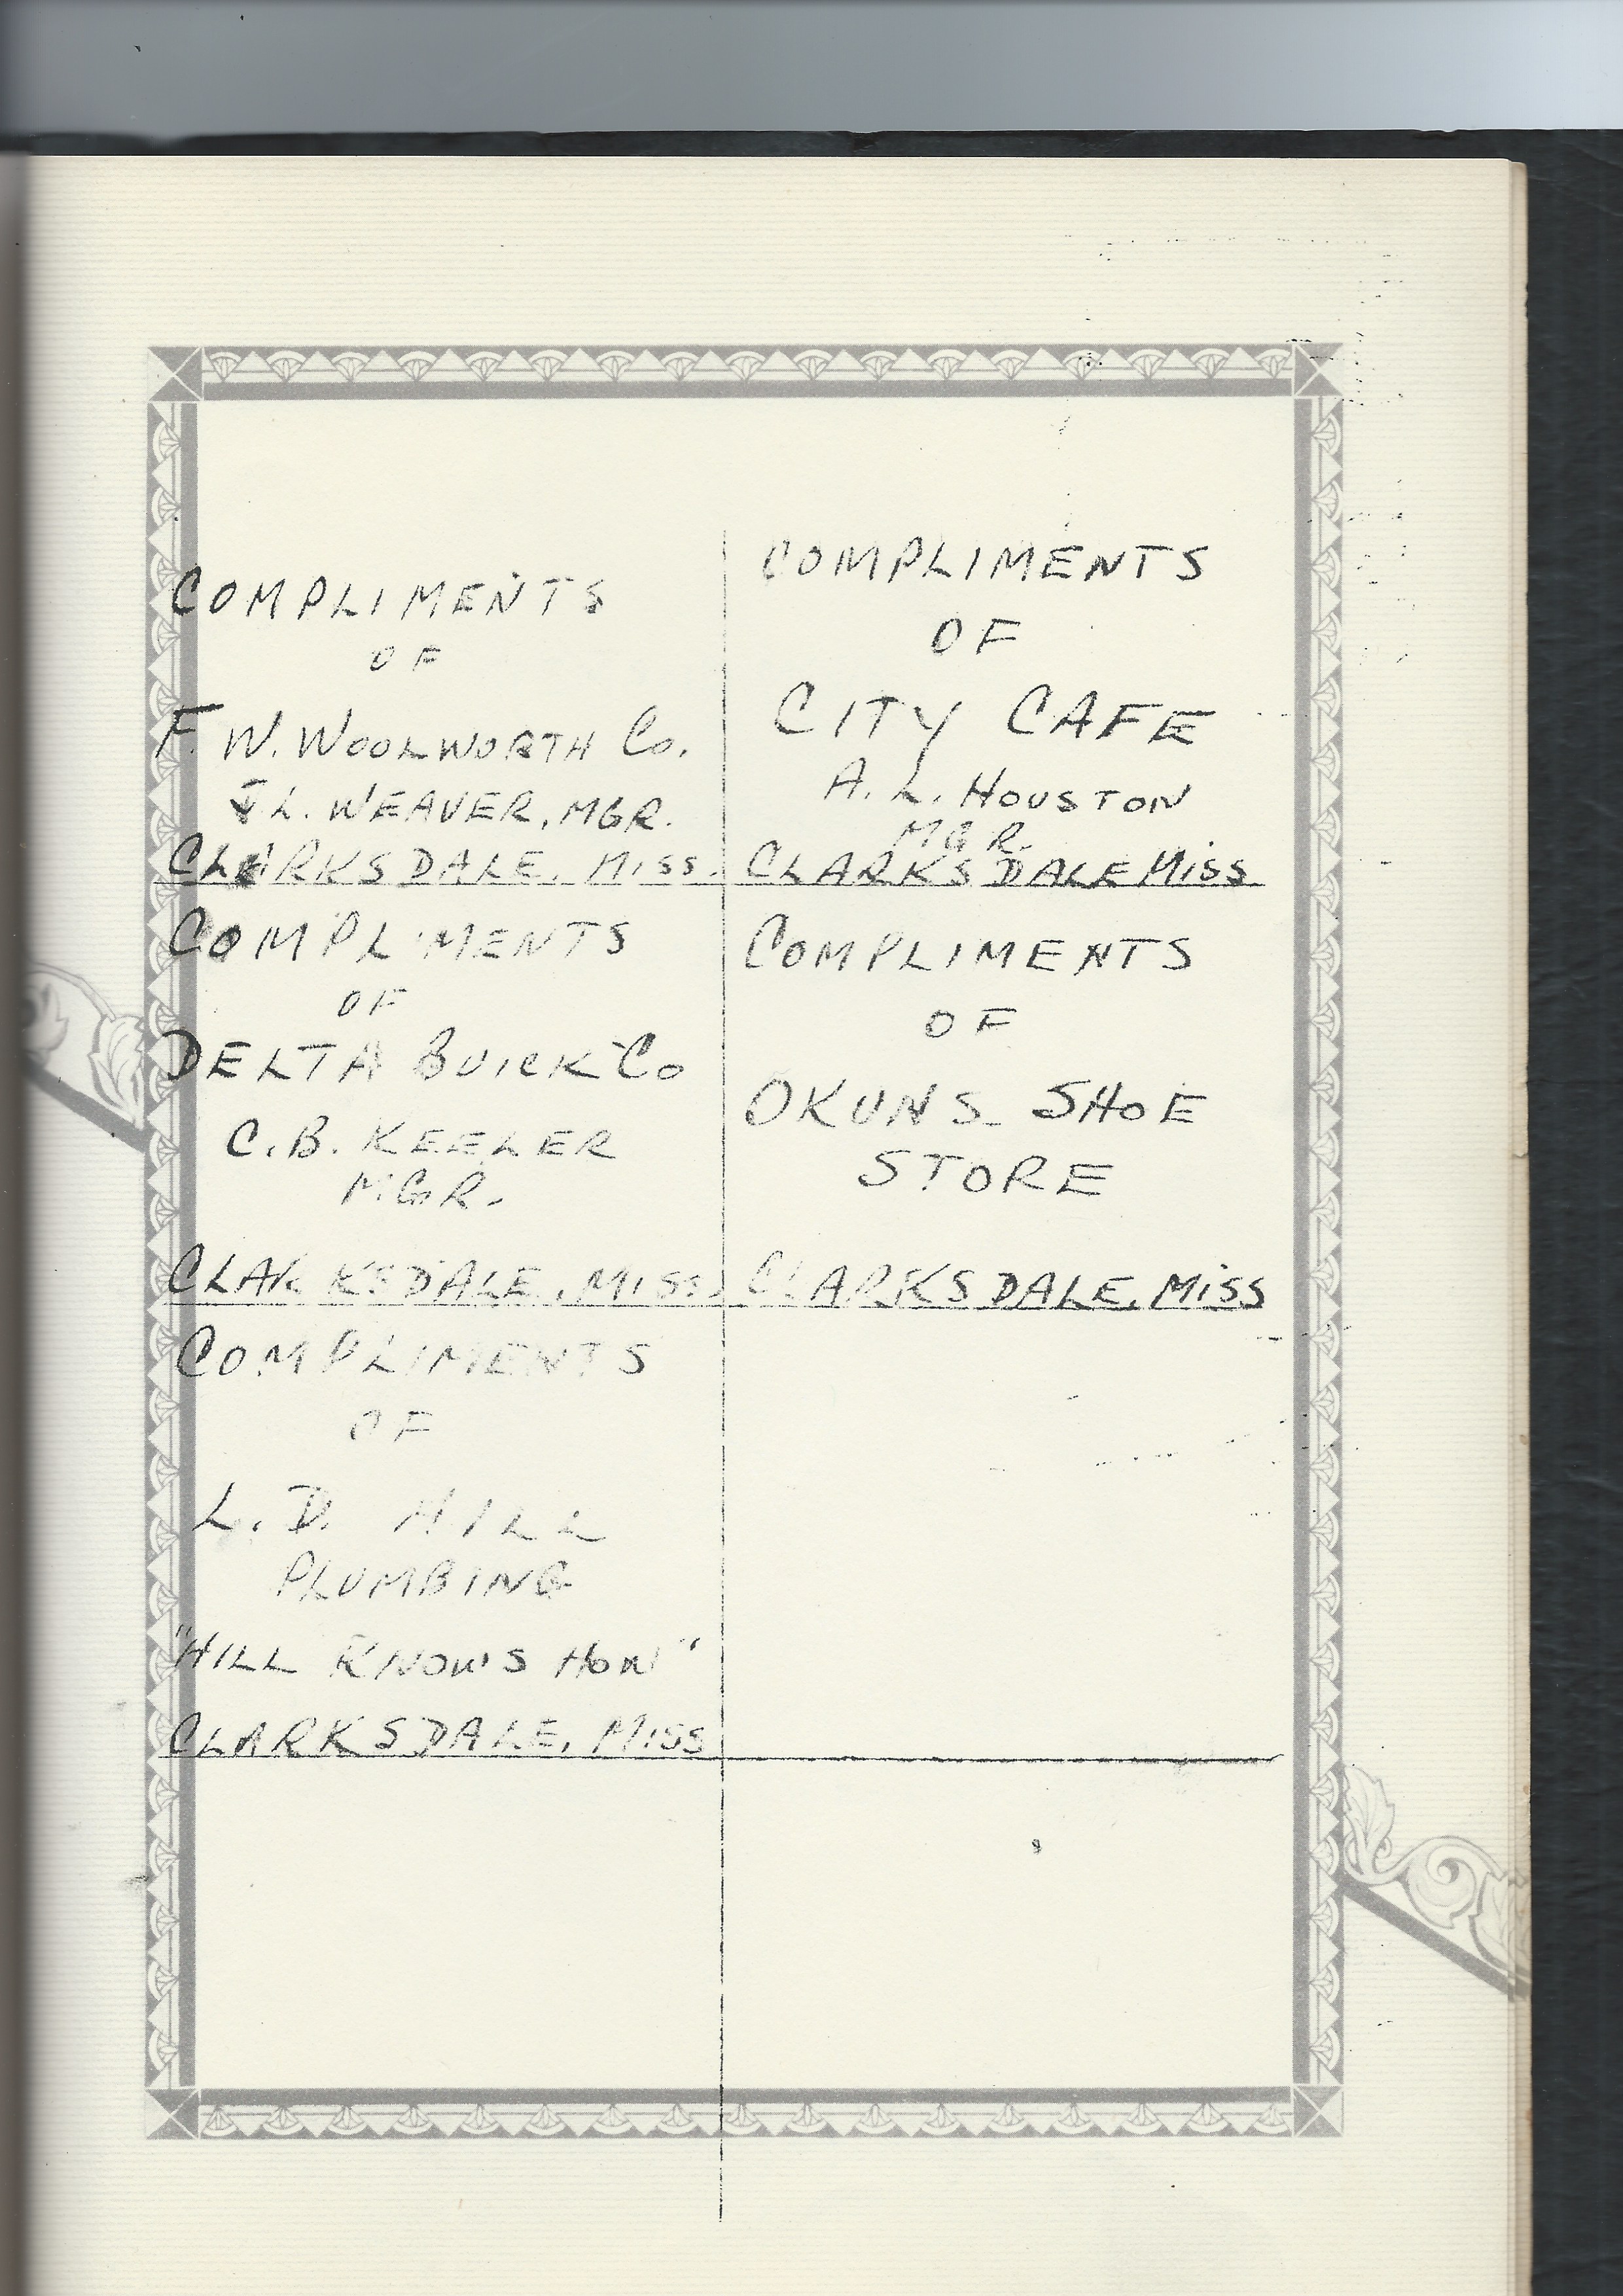 COMPLIMENTS
OF
F. W. WOOLWORTH Co.
J L. WEAVER, MGR.
CLARKSDALE, MISS.
COMPLIMENTS
OF
DELTA BUICK Co
C. B. KEELER
MGR.
CLARKSDALE, MISS.
COMPLIMENTS
OF
L. D. HILL
PLUMBING
"HILL KNOWS HOW"
CLARKSDALE, MISS
COMPLIMENTS
OF
CITY CAFE
A. L. HOUSTON
MGR.
CLARKSDALE MISS.
COMPLIMENTS
OF
OKUNS SHOE
STORE
CLARKSDALE, MISS